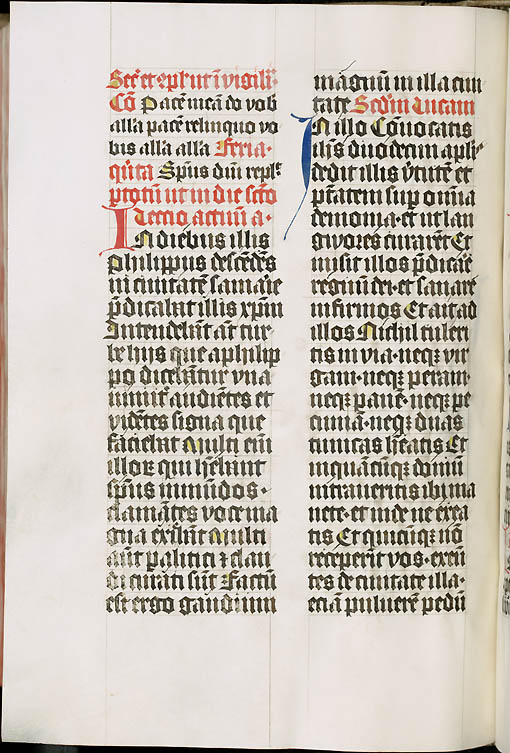 Secr̄ et c̄pl̄ ut ī vigilī.
Cō Pacē meā do vob
all'a pacē relinquo vo
bis all'a all'a Feria
qūta Sp̄us dn̄i repl'
p totū ut in die sc̄to
Lectio actuū a.
In diebus illis
philippus descēdēs
in ciuitatē samarie
p̄dicabāt illis xp̄m
Intendebāt aūt tur
be hijs que a philip
po dicebātur vna
nimit' audiētes et
vidētes signa que
faciebat Multi em̄
illorꝫ qui hēbant
sp̄us mundos.
clamātes voce ma
gna exibāt Multi
aūt palitici ꝛ clau
di curati sūt Factū
est ergo gaudium
māgnū in illa ciui
tate Scd̄m Lucam
In illo Cōuocatis
ih̄s duodecim apl'i
dedit illis v̄tutē et
p̄tatem sup omīa
demonia. et ut lan
gwores curarēt Et
misit illos p̄dicare
regnū dei. et sanare
infirmos Et ait ad
illos Nichil tuleri
tis in via. neqꝫ vir
gam. neqꝫ peram.
neqꝫ panē. neqꝫ pe
cuniā. neqꝫ duas
tunicas hēatis Et
in quācūqꝫ domū
intraueritis ibi ma
nete. et inde ne exea
tis Et quicūqꝫ nō
receperīt vos. exeū
tes de ciuitate illa.
eciā puluerē pedū